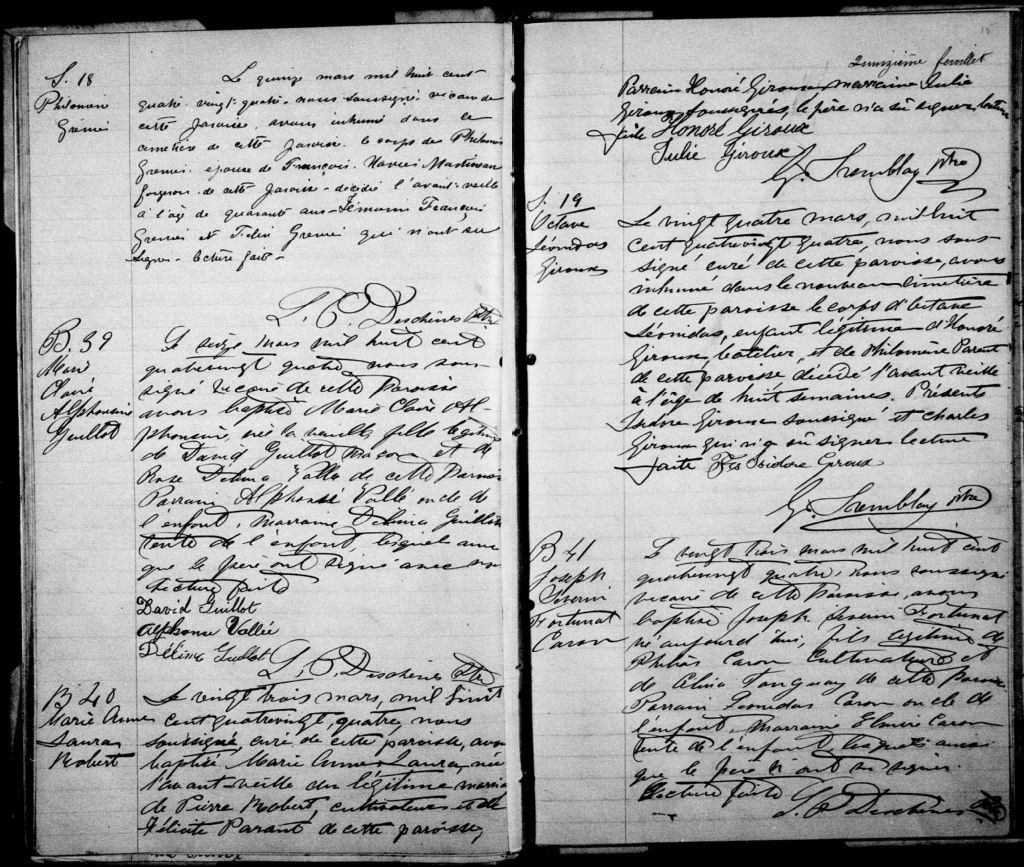 S. 18
Philomen
Grenier
Le quinze mars mil huit cent
quatre-vingt-quatre, nous soussigné vicaire de
cette Paroisse, avons inhumé dans le
cimetière de cette Paroisse le corps de Philomène
Grenier épouse de François-Xavier
forgeron de cette Paroisse, décédé l'avant-veille
à l'âge de quarante ans. Témoins François
Grenier et Grenier qui n'ont su
signer. Lecture faite.
L. P. Deschênes Ptre
B. 39
Marie
Claire
Alphonsine
Guillot
Le seize mars mil huit cent
quatrevingt quatre, nous sous-
signé vicaire de cette Paroisse
avons baptisé Marie Claire Al-
phonsine, née la veille fille légitime
de David Guillot maçon et de
Rose Delima Vallée de cette Paroisse
Parrain Alphonse Vallée oncle de
l'enfant, marraine Délima Guillot
tante de l'enfant, lesquels ainsi
que le père ont signé avec nous
Lecture faite
David Guillot
Alphonse Vallée
Délima Guillot
L. P. Deschênes Ptre
B. 40
Marie Anne
Laura
Robert
Le vingt trois mars, mil huit
cent quatrevingt, quatre, nous
soussigné, curé de cette paroisse, avons
baptisé Marie Anne Laura, née
l'avant-veille du légitime mariage
de Pierre Robert, cultivateur et de
Félicité Parant de cette paroisse,
15
Quinzième feuillet
Parrain Honoré Giroux marraine Julie
Giroux soussignés, le père n'a su signer, lecture
faite Honoré Giroux
Julie Giroux
G. Tremblay ptre
S. 19
Octave
Léonidas
Giroux
Le vingt quatre mars, mil huit
cent quatrevingt quatre, nous sous-
signé curé de cette paroisse, avons
inhumé dans le nouveau cimetière
de cette paroisse le corps d'Octave
Léonidas, enfant légitime d'Honoré
Giroux batelier, et de Philomène Parant
de cette paroisse décédé l'avant veille
à l'âge de huit semaines. Présents
Isidore Giroux soussigné et charles
Giroux qui n'a su signer lecture
faite Frs Isidore Giroux
G. Tremblay ptre
B 41
Joseph
Séverin
Fortunat
Caron
Le vingt trois mars mil huit cent
quatrevingt quatre, nous soussigné
vicaire de cette Paroisse, avons
baptisé Joseph Séverin Fortunat
né aujourd'hui, fils légitime de
Caron Cultivateur et
de Célina Tanguay de cette Paroisse
Parrain Léonidas Caron oncle de
l'enfant, marraine Caron
tante de l'enfant, lesquels ainsi
que le père n'ont su signer.
Lecture faite
L. P. Deschênes Ptre